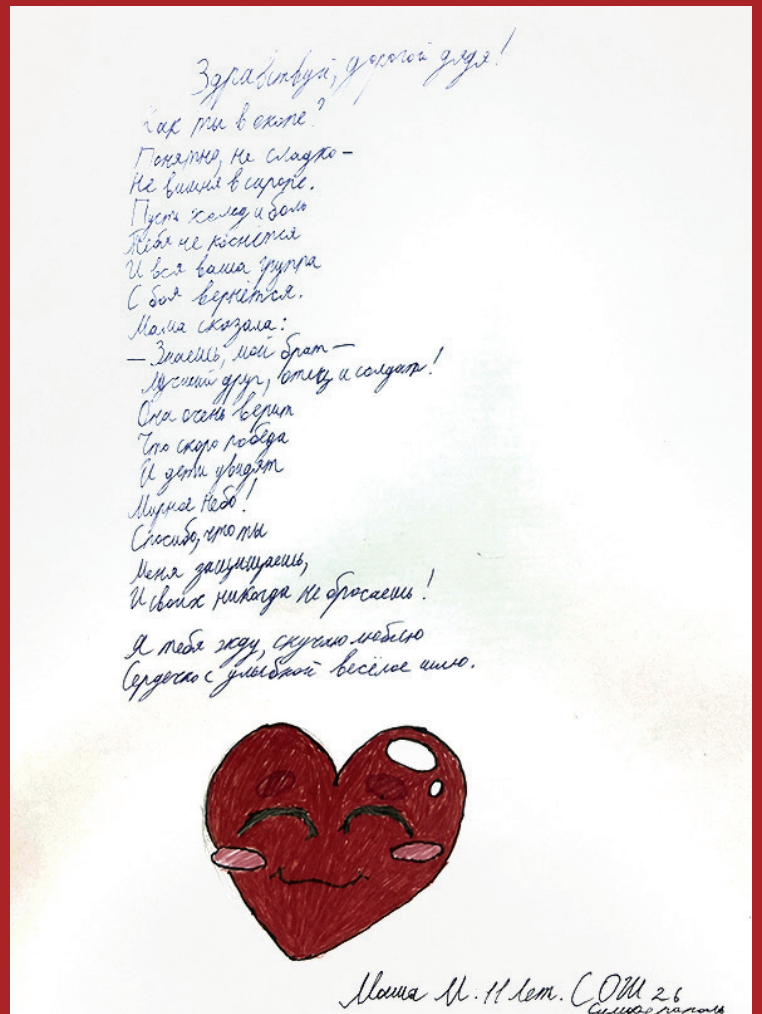 Здравствуй, дорогой дядя!
Как ты в окопе?
Понятно, не сладко –
Не вишня в сиропе.
Пусть холод и боль
Тебя не коснётся
И вся ваша группа
С боя вернётся.
Мама сказала:
– Знаешь, мой брат –
Лучший друг, отец и солдат!
Она очень верит
Что скоро победа
И дети увидят
Мирное небо!
Спасибо, что ты
Меня защищаешь,
И своих никогда не бросаешь!
Я тебя жду, скучаю люблю
Сердечко с улыбкой весёлое шлю.
Маша М. 11 лет. СОШ 26
Симферополь